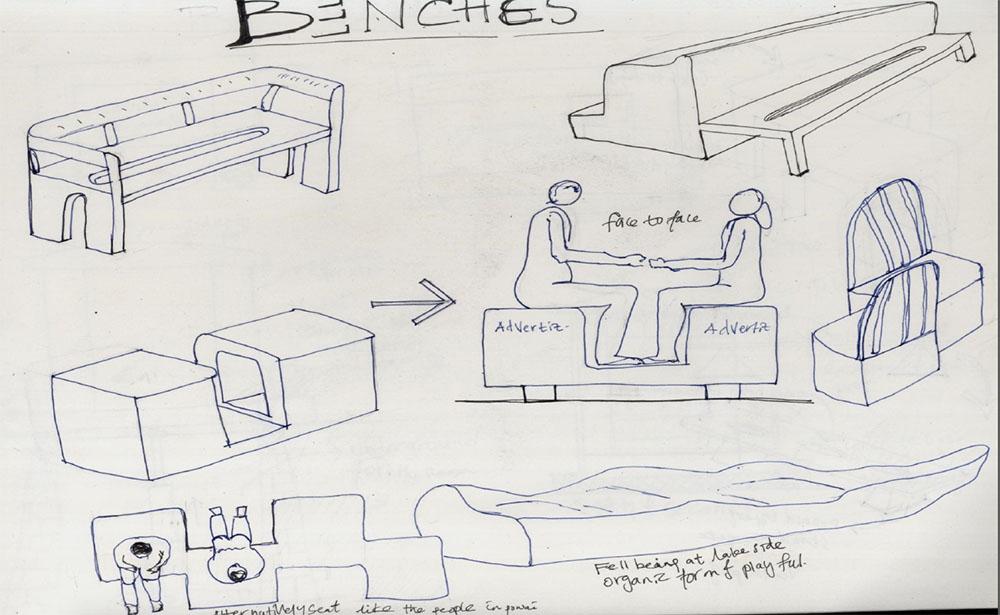 BENCHES
face to face
Advertiz-
Advertiz
Fell being at lake side
organiz form of play ful.
seat like the people in